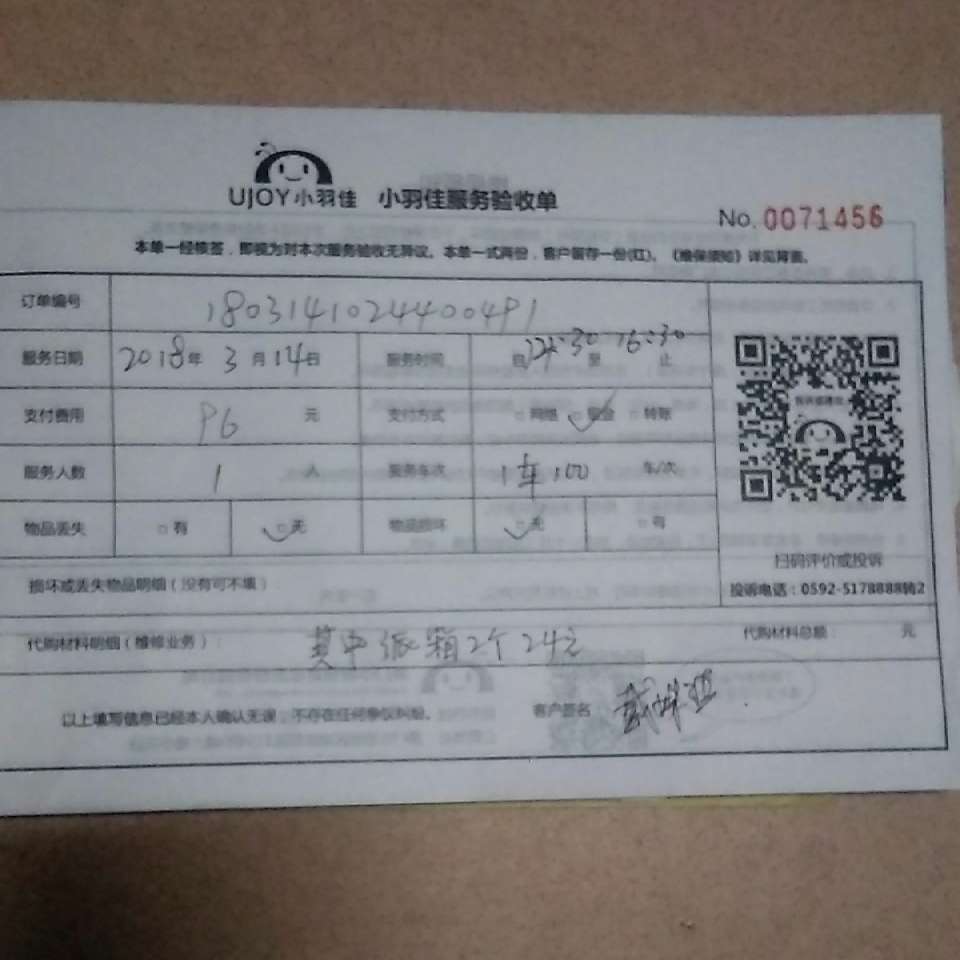 UJOY小羽佳 小羽佳服务验收单
No. 0071456
本单一经核签，即视为对本次服务验收无异议。本单一式两份，客户留存一份(红)。《维保须知》详见背面。
订单编号 1803141024400491
服务日期 2018年 3月14日 服务时间 自 :30 至 16:30 止
支付费用 96 元 支付方式 网络 现金 转账
服务人数 1 人 服务车次 1车100 车/次
物品丢失 有 无 物品损坏 无 有
扫码评价或投诉
损坏或丢失物品明细（没有可不填）
投诉电话：0592-5178888转2
代购材料明细（维修业务）： 其中纸箱2个24元 代购材料总额： 元
以上填写信息已经本人确认无误，不存在任何争议纠纷。 客户签名